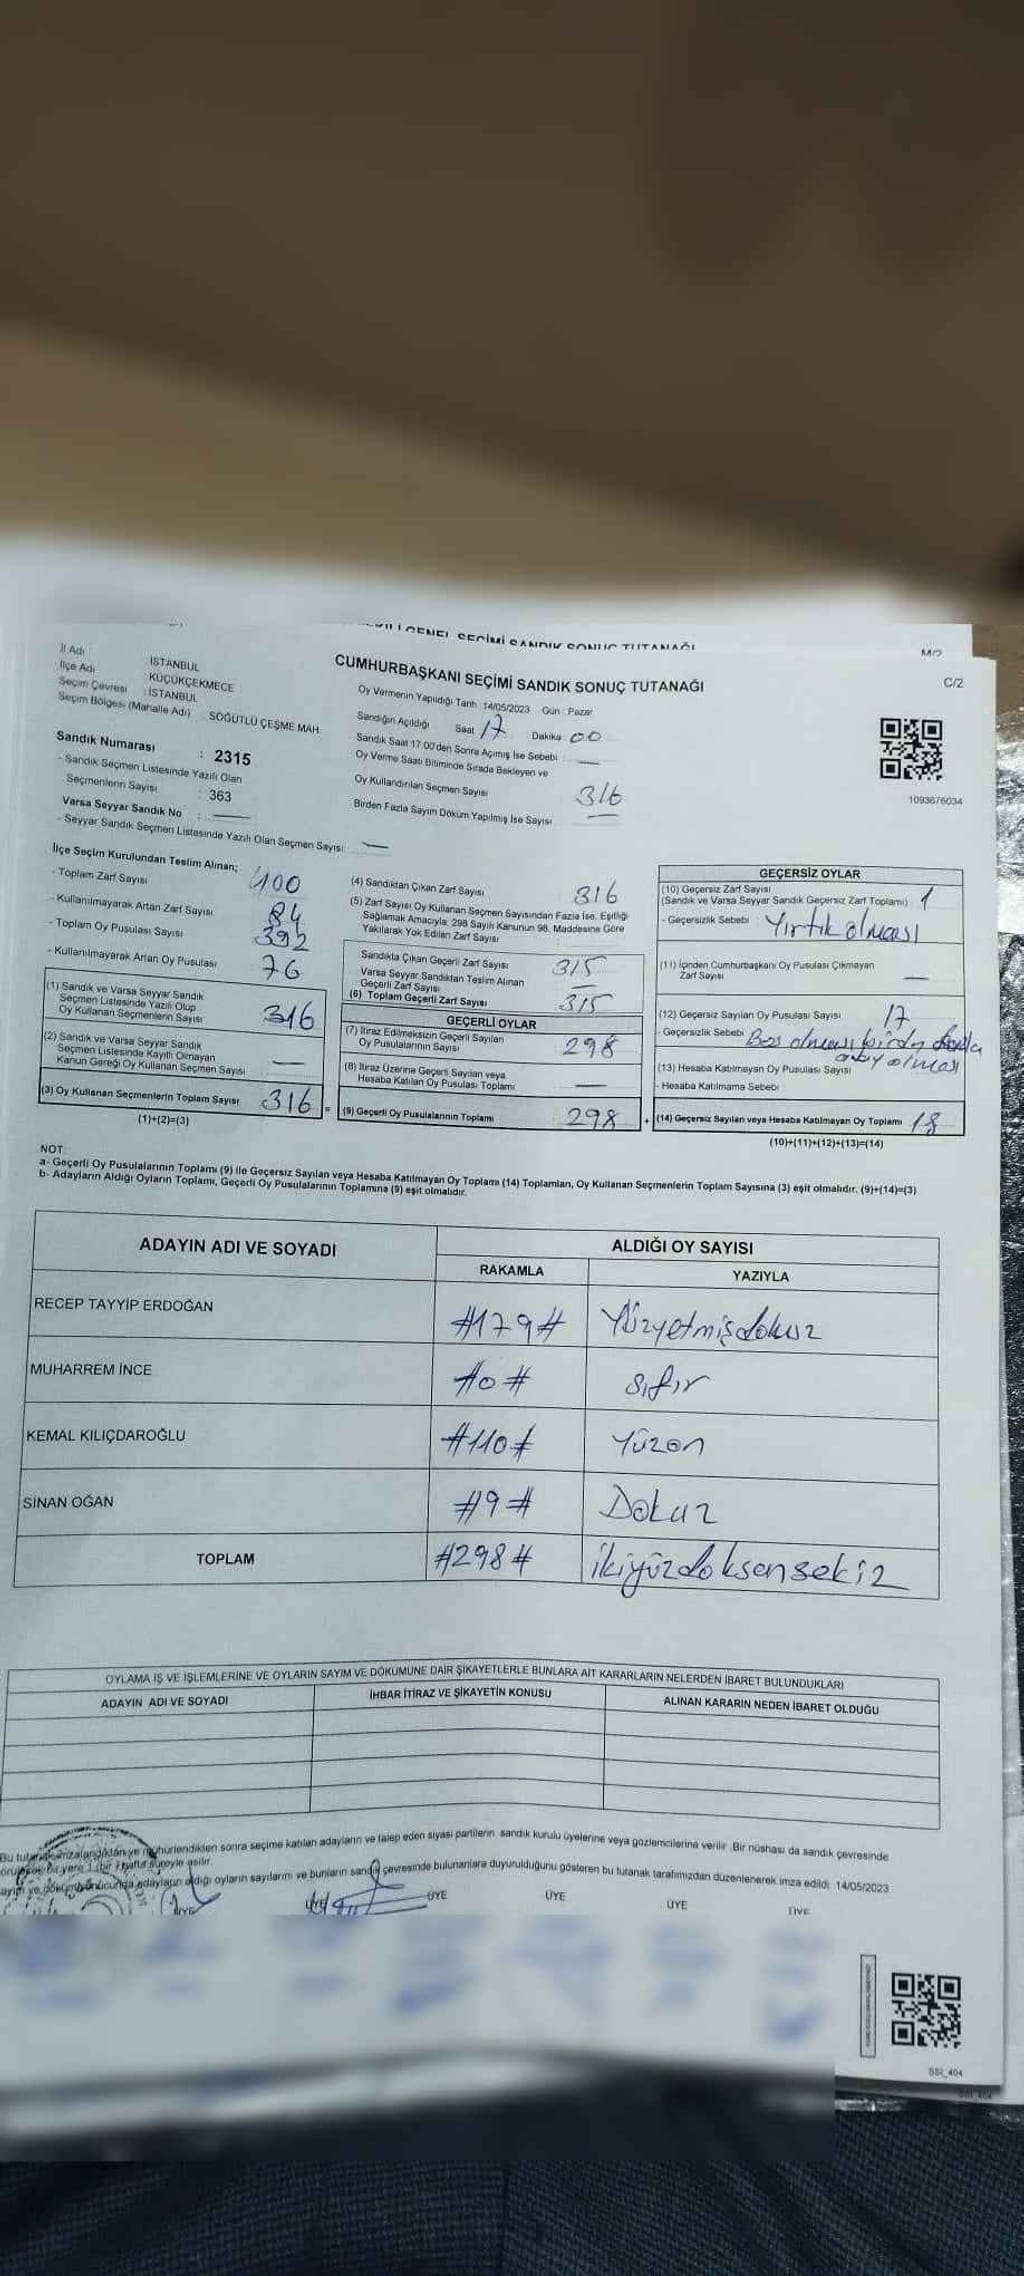 GENEL SEÇİMİ SANDIK SONUÇ TUTANAĞI
M/2
C/2
İl Adı : İSTANBUL
İlçe Adı : KÜÇÜKÇEKMECE
Seçim Çevresi : İSTANBUL
Seçim Bölgesi (Mahalle Adı) : SÖĞÜTLÜ ÇEŞME MAH.
CUMHURBAŞKANI SEÇİMİ SANDIK SONUÇ TUTANAĞI
Oy Vermenin Yapıldığı Tarih :14/05/2023 Gün : Pazar
Sandığın Açıldığı Saat 17 Dakika 00
Sandık Saat 17.00'den Sonra Açılmış İse Sebebi : —
Oy Verme Saati Bitiminde Sırada Bekleyen ve
Oy Kullandırılan Seçmen Sayısı 316
Birden Fazla Sayım Döküm Yapılmış İse Sayısı —
1093676034
Sandık Numarası : 2315
- Sandık Seçmen Listesinde Yazılı Olan
Seçmenlerin Sayısı : 363
Varsa Seyyar Sandık No : —
- Seyyar Sandık Seçmen Listesinde Yazılı Olan Seçmen Sayısı: —
İlçe Seçim Kurulundan Teslim Alınan;
- Toplam Zarf Sayısı 400
- Kullanılmayarak Artan Zarf Sayısı 84
- Toplam Oy Pusulası Sayısı 392
- Kullanılmayarak Artan Oy Pusulası 76
(1) Sandık ve Varsa Seyyar Sandık
Seçmen Listesinde Yazılı Olup
Oy Kullanan Seçmenlerin Sayısı 316
(2) Sandık ve Varsa Seyyar Sandık
Seçmen Listesinde Kayıtlı Olmayan
Kanun Gereği Oy Kullanan Seçmen Sayısı —
(3) Oy Kullanan Seçmenlerin Toplam Sayısı 316 =
(1)+(2)=(3)
(4) Sandıktan Çıkan Zarf Sayısı 316
(5) Zarf Sayısı Oy Kullanan Seçmen Sayısından Fazla İse, Eşitliği
Sağlamak Amacıyla, 298 Sayılı Kanunun 98. Maddesine Göre
Yakılarak Yok Edilen Zarf Sayısı
Sandıkta Çıkan Geçerli Zarf Sayısı 315
Varsa Seyyar Sandıktan Teslim Alınan
Geçerli Zarf Sayısı —
(6) Toplam Geçerli Zarf Sayısı 315
GEÇERLİ OYLAR
(7) İtiraz Edilmeksizin Geçerli Sayılan
Oy Pusulalarının Sayısı 298
(8) İtiraz Üzerine Geçerli Sayılan veya
Hesaba Katılan Oy Pusulası Toplamı —
(9) Geçerli Oy Pusulalarının Toplamı 298 +
GEÇERSİZ OYLAR
(10) Geçersiz Zarf Sayısı
(Sandık ve Varsa Seyyar Sandık Geçersiz Zarf Toplamı) 1
- Geçersizlik Sebebi Yırtık olması
(11) İçinden Cumhurbaşkanı Oy Pusulası Çıkmayan
Zarf Sayısı —
(12) Geçersiz Sayılan Oy Pusulası Sayısı 17
- Geçersizlik Sebebi Boş olması birden fazla
olması
(13) Hesaba Katılmayan Oy Pusulası Sayısı
- Hesaba Katılmama Sebebi
(14) Geçersiz Sayılan veya Hesaba Katılmayan Oy Toplamı 18
(10)+(11)+(12)+(13)=(14)
NOT:
a- Geçerli Oy Pusulalarının Toplamı (9) ile Geçersiz Sayılan veya Hesaba Katılmayan Oy Toplamı (14) Toplamları, Oy Kullanan Seçmenlerin Toplam Sayısına (3) eşit olmalıdır. (9)+(14)=(3)
b- Adayların Aldığı Oyların Toplamı, Geçerli Oy Pusulalarının Toplamına (9) eşit olmalıdır.
ADAYIN ADI VE SOYADI
ALDIĞI OY SAYISI
RAKAMLA YAZIYLA
RECEP TAYYİP ERDOĞAN #179# Yüzyetmişdokuz
MUHARREM İNCE #0# sıfır
KEMAL KILIÇDAROĞLU #110# Yüzon
SİNAN OĞAN #9# Dokuz
TOPLAM #298# ikiyüzdoksensekiz
OYLAMA İŞ VE İŞLEMLERİNE VE OYLARIN SAYIM VE DÖKÜMÜNE DAİR ŞİKAYETLERLE BUNLARA AİT KARARLARIN NELERDEN İBARET BULUNDUKLARI
ADAYIN ADI VE SOYADI
İHBAR İTİRAZ VE ŞİKAYETİN KONUSU
ALINAN KARARIN NEDEN İBARET OLDUĞU
Bu tutanak imzalandıktan ve mühürlendikten sonra seçime katılan adayların ve talep eden siyasi partilerin sandık kurulu üyelerine veya gözlemcilerine verilir. Bir nüshası da sandık çevresinde
bir yere 1 (bir) hafta süreyle asılır.
ve dökümü sonucunda adayların aldığı oyların sayılarını ve bunların sandık çevresinde bulunanlara duyurulduğunu gösteren bu tutanak tarafımızdan düzenlenerek imza edildi. 14/05/2023
ÜYE ÜYE ÜYE ÜYE ÜYE ÜYE
SSİ_404
SSİ_404